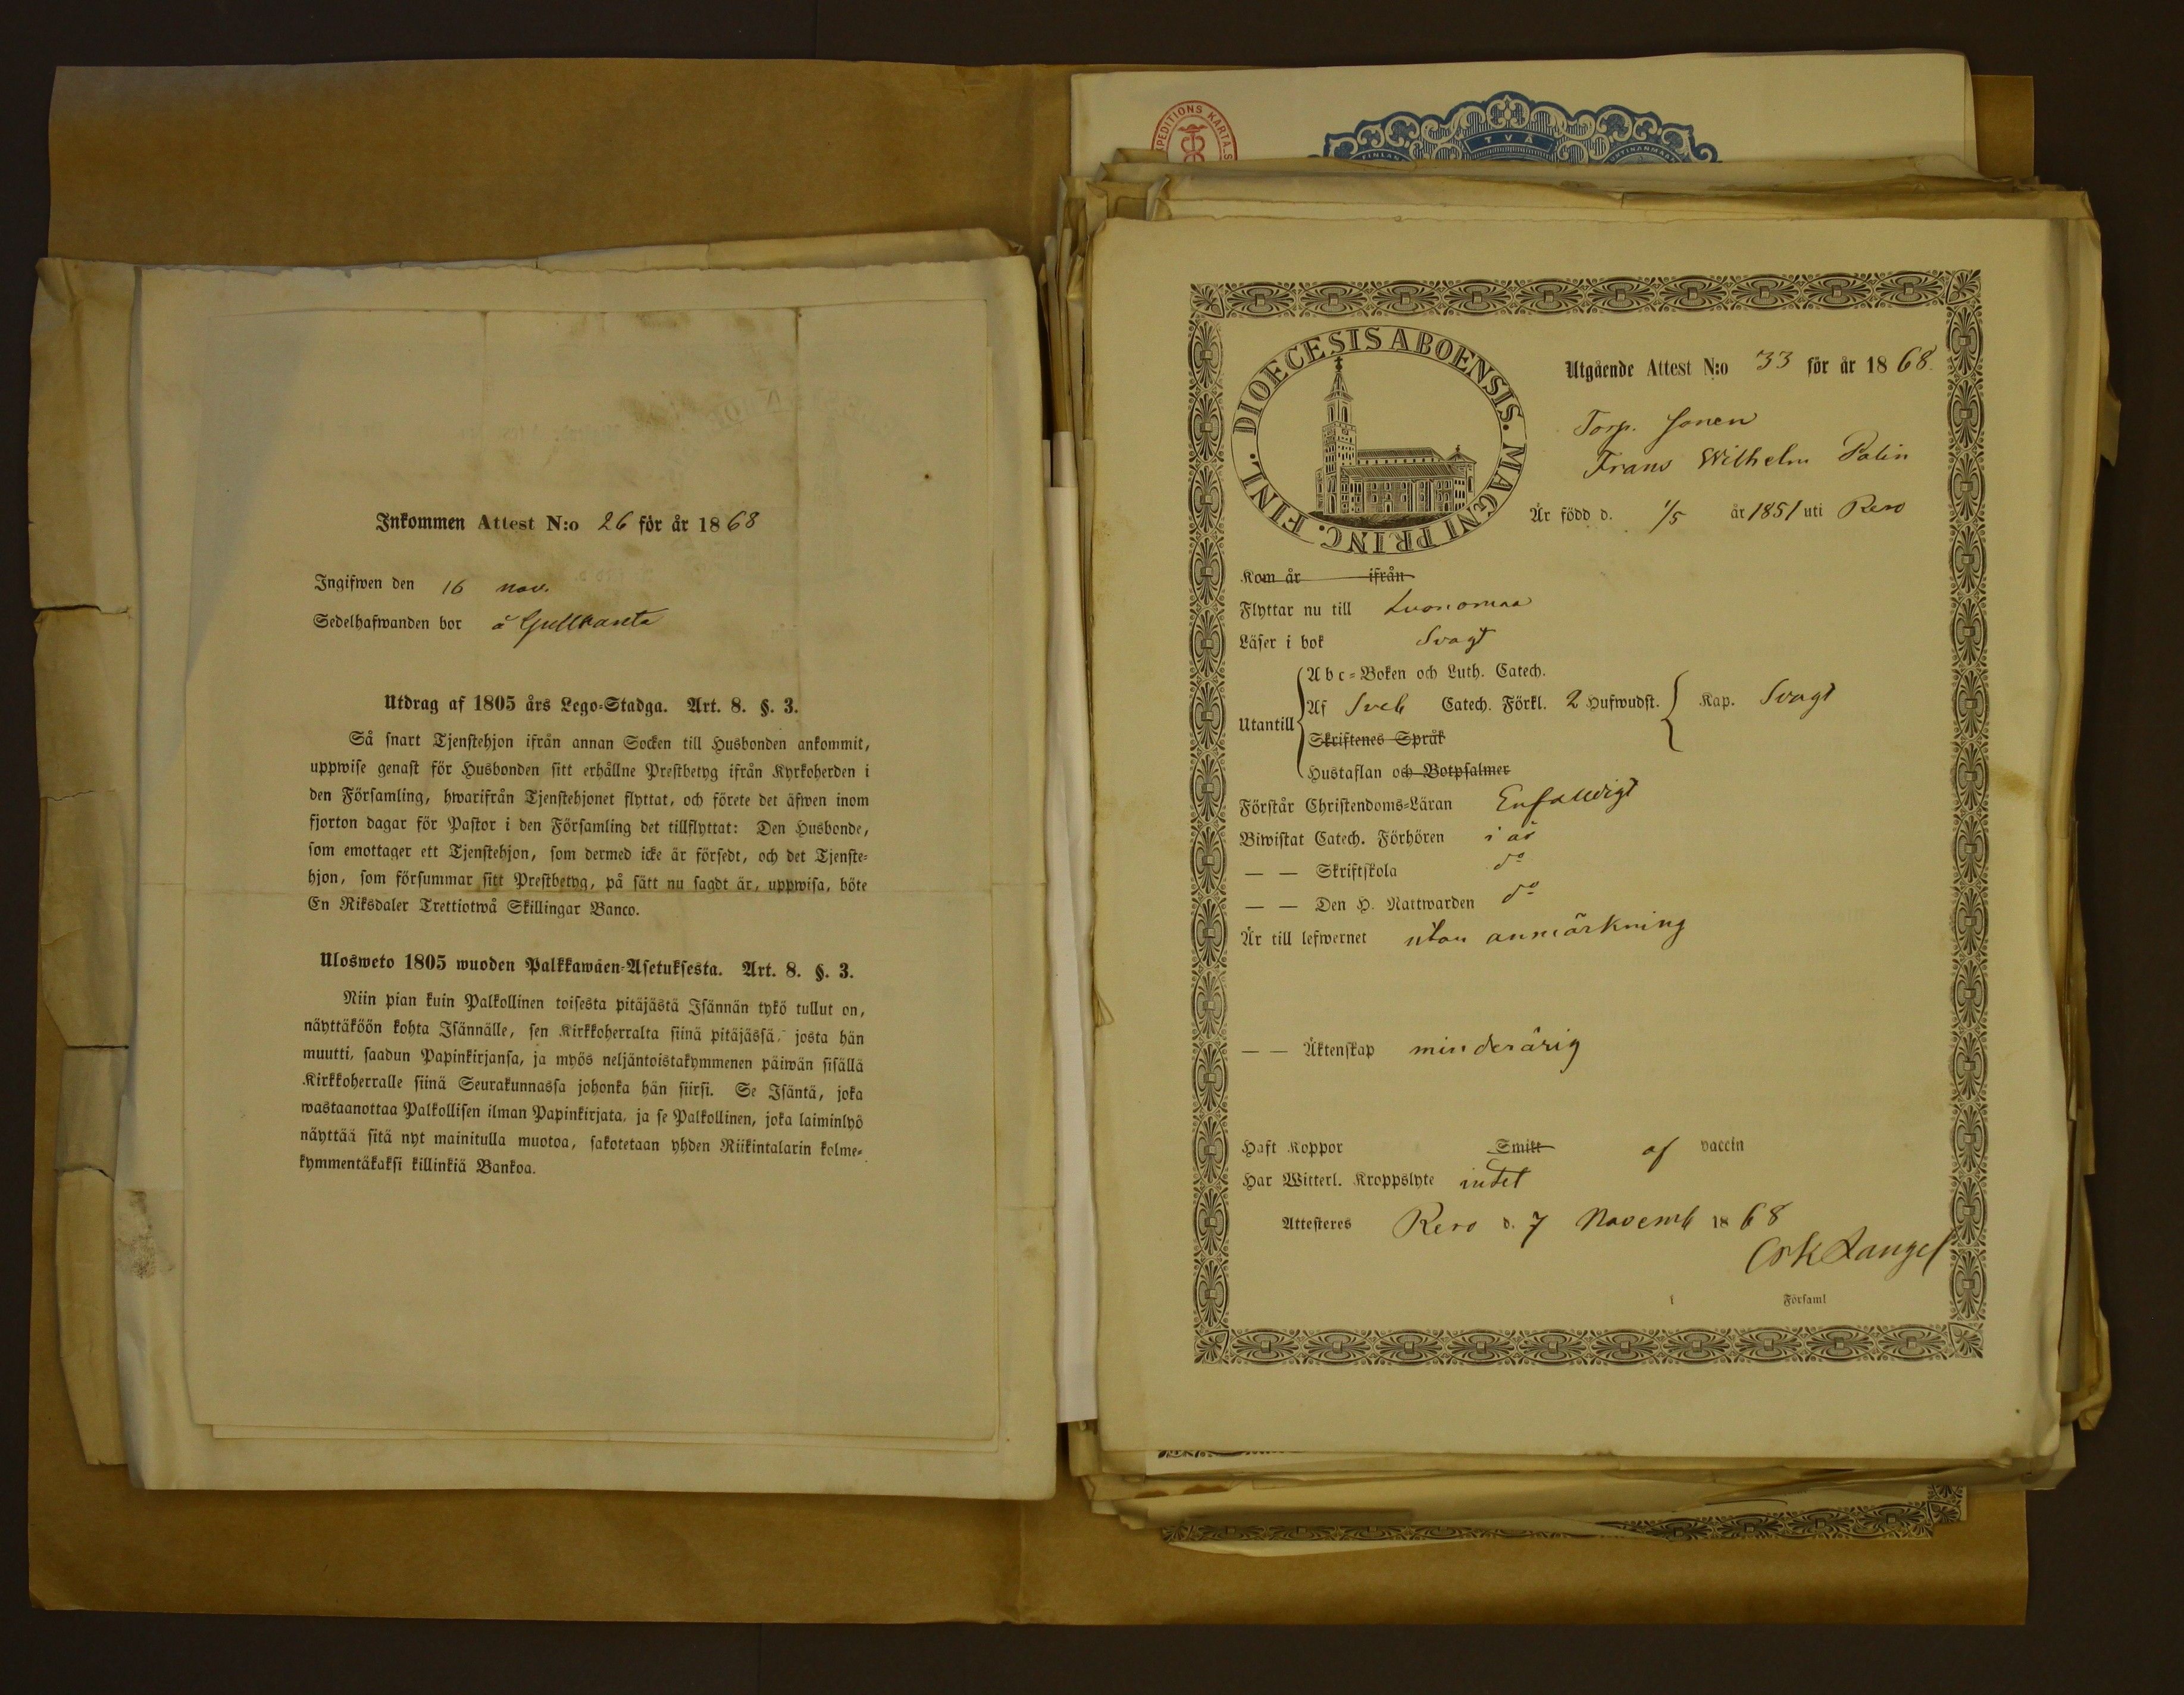 Inkommen Attest N:o 26 för år 1868
Ingifwen den 16 nov.
Sedelhafwanden bor å Gullkanta
Utdrag af 1805 års Lego-Stadga. Art. 8. §. 3.
Så snart Tjenstehjon ifrån annan Socken till Husbonden ankommit,
uppwise genast för Husbonden sitt erhållne Prestbetyg ifrån Kyrkoherden i
den Församling, hwarifrån Tjenstehjonet flyttat, och förete det äfwen inom
fjorton dagar för Pastor i den Församling det tillflyttat: Den Husbonde,
som emottager ett Tjenstehjon, som dermed icke är försedt, och det Tjenste-
hjon, som försummar sitt Prestbetyg, på sätt nu sagdt är, uppwisa, böte
En Riksdaler Trettiotwå Skillingar Banco.
Ulosweto 1805 wuoden Palkkawäen-Asetuksesta. Art. 8. §. 3.
Niin pian kuin Palkollinen toisesta pitäjästä Isännän tykö tullut on,
näyttäköön kohta Isännälle, sen Kirkkoherralta siinä pitäjässä, josta hän
muutti, saadun Papinkirjansa, ja myös neljäntoistakymmenen päiwän sisällä
Kirkkoherralle siinä Seurakunnassa johonka hän siirsi. Se Isäntä, joka
wastaanottaa Palkollisen ilman Papinkirjata, ja se Palkollinen, joka laiminlyö
näyttää sitä nyt mainitulla muotoa, sakotetaan yhden Riikintalarin kolme-
kymmentäkaksi killinkiä Bankoa.
PEDITIONS KARTA.S
TVÅ
FINLAN
DIOECESIS ABOENSIS. MAGNI PRINC. FINL.
Utgående Attest N:o 33 för år 1868.
Torp. Sonen
Frans Wilhelm Palin
Är född d. 1/5 år 1851 uti Reso
Kom år ifrån
Flyttar nu till Luonomaa
Läser i bok Svagt
Abc-Boken och Luth. Catech.
Utantill Af Sveb Catech. Förkl. 2 Hufwudst. Kap. Svagt
Skriftenes Språk
Hustaflan och Botpsalmer
Förstår Christendoms-Läran Enfalldigt
Biwistat Catech. Förhören i år
— — Skriftskola do
— — Den H. Nattwarden do
Är till lefwernet utan anmärkning
— — Äktenskap minderårig
Haft Koppor Smitt af vaccin
Har Witterl. Kroppslyte intet
Attesteres Reso d. 7 Novemb 1868
i Församl